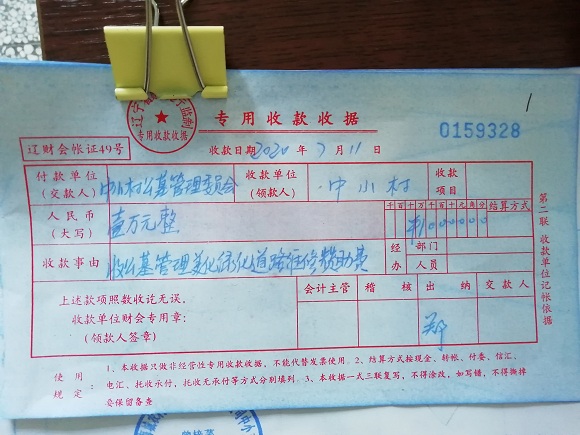 专用收款收据
专用收款收据
辽财会帐证49号
收款日期 2020 年 7 月 11 日
0159328
付款单位
(交款人)
中小村公墓管理委员会
收款单位
(领款人)
中小村
收款
项目
人民币
(大写)
壹万元整
千百十万千百十元角分
结算方式
收款事由
收公墓管理美化绿化道路维修赞助费
经办
部门
人员
上述款项照数收讫无误。
收款单位财会专用章:
(领款人签章)
会计主管
稽核
出纳
交款人
郑
第二联 收款单位记帐依据
使用规定:
1、本收据只做非经营性专用收款收据,不能代替发票使用。2、结算方式按现金,转帐、付委、信汇、
电汇、托收承付,托收无承付等方式分别填列。3、本收据一式三联复写,不得涂改,如写错,不得撕掉
妥保留备查